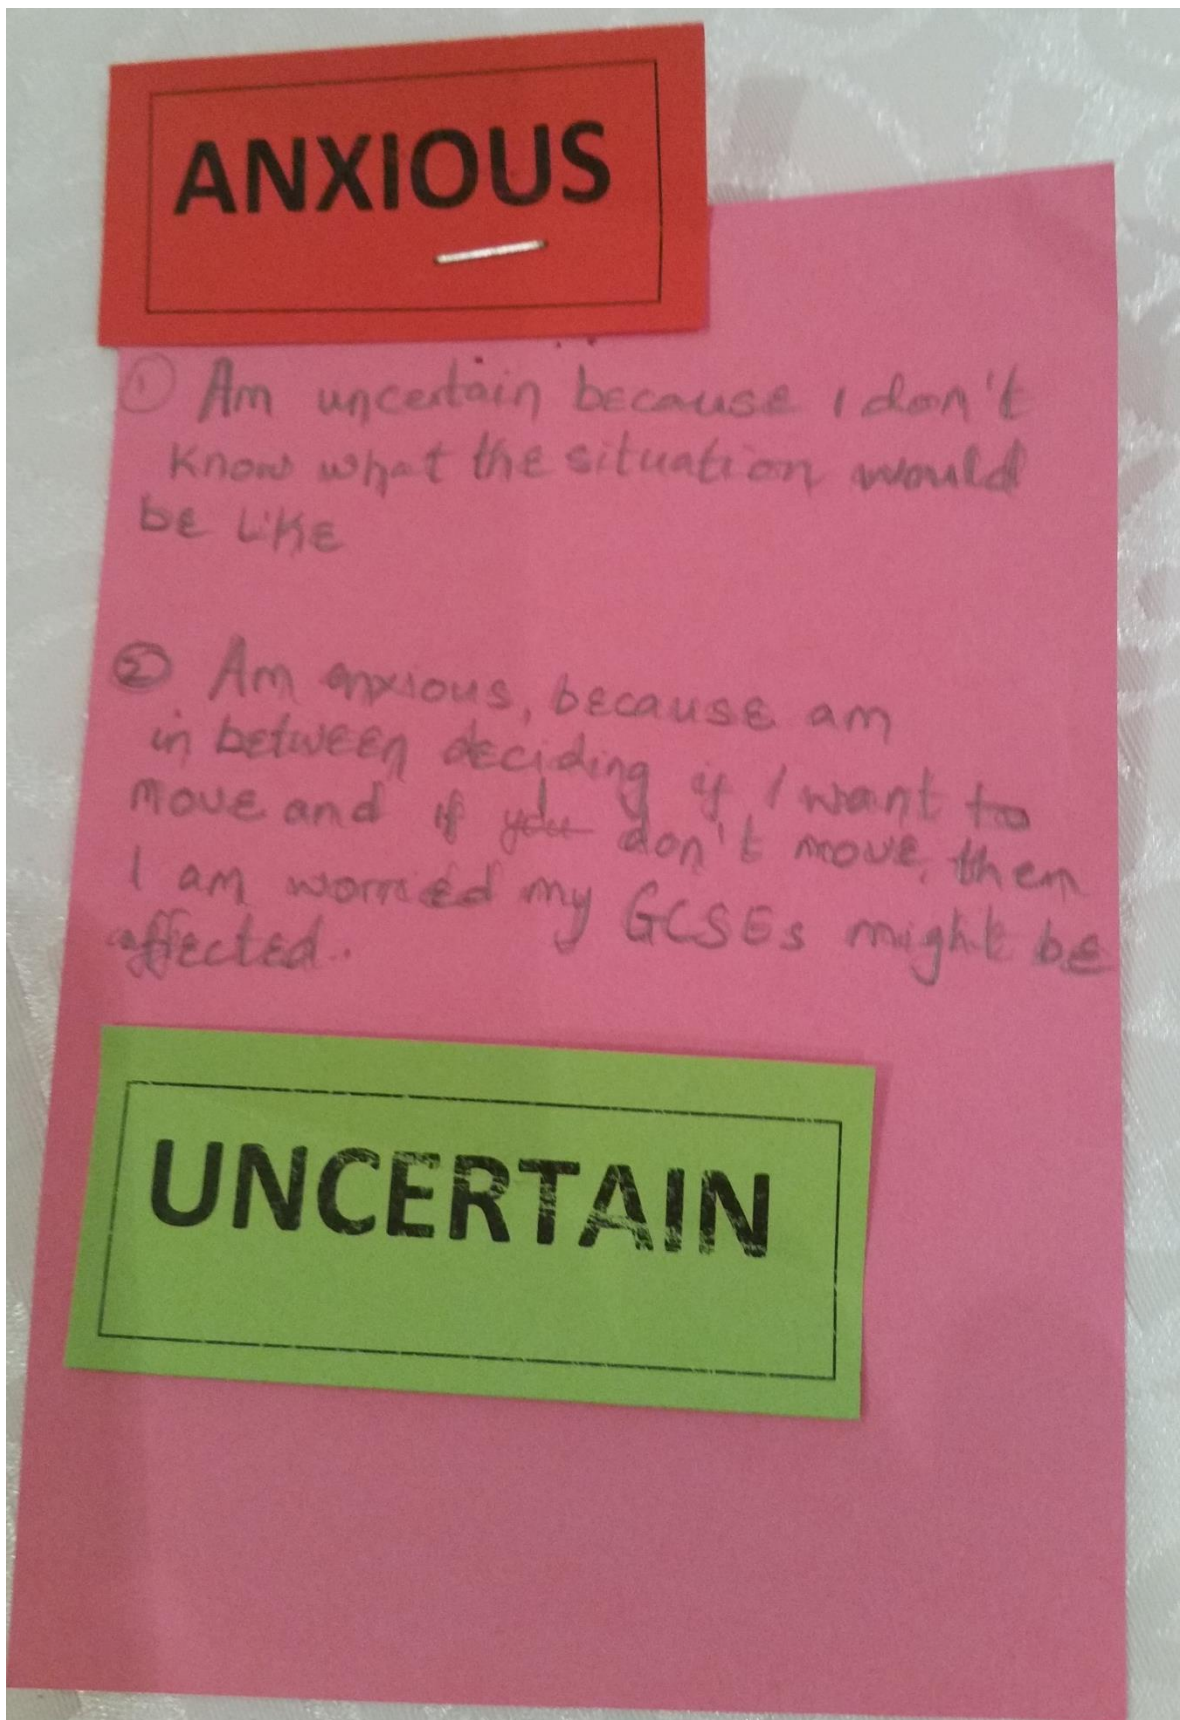 ANXIOUS
① Am uncertain because I don't
know what the situation would
be like
② Am anxious, because am
in between deciding if I want to
move and if you I don't move, then
I am worried my GCSEs might be
affected.
UNCERTAIN